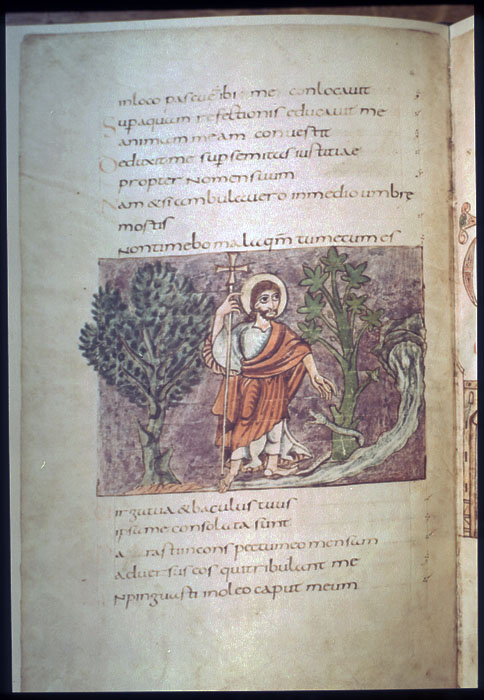 inloco pascuę ibi me conlocauit
Sup aquam refectionis educauit me
animam meam conuertit
Deduxit me sup semitas iustitiae
propter Nomensuum
Nam & si ambulauero inmedio umbrę
mortis
Nontimebo mala qm̄ tumecum es
irga tua & baculus tuus
ipsa me consolata sunt
arasti incons pectu meo mensam
aduersus eos qui tribulant me
Npinguasti inoleo caput meum